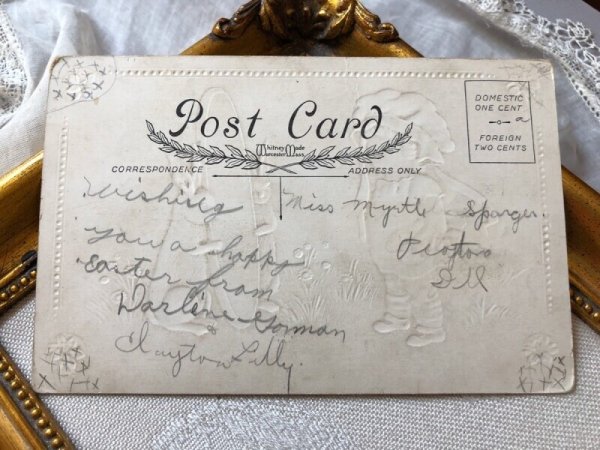 Post Card
Whitney Made
Worcester Mass
DOMESTIC
ONE CENT
FOREIGN
TWO CENTS
CORRESPONDENCE
ADDRESS ONLY
Wishing
you a happy
Easter from
Darline Gorman
Clayton
Miss Myrtle
Ill